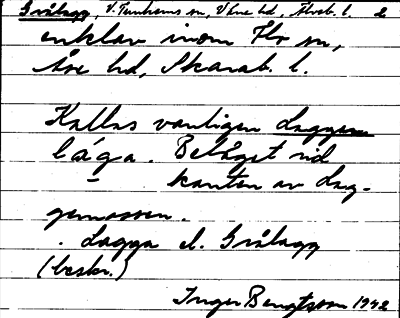 Grålagg, V. Tunhems sn, V1ne hd, Älvsb. l. 2
enklav inom Flo sn,
Åse hd, Skarab. l.
Kallas vanligen Laggen
låga. Beläget vid
kanten av Lag-
gemossen.
Lagga el. Grålagg
(beskr.)
Inger Bengtsson 1942